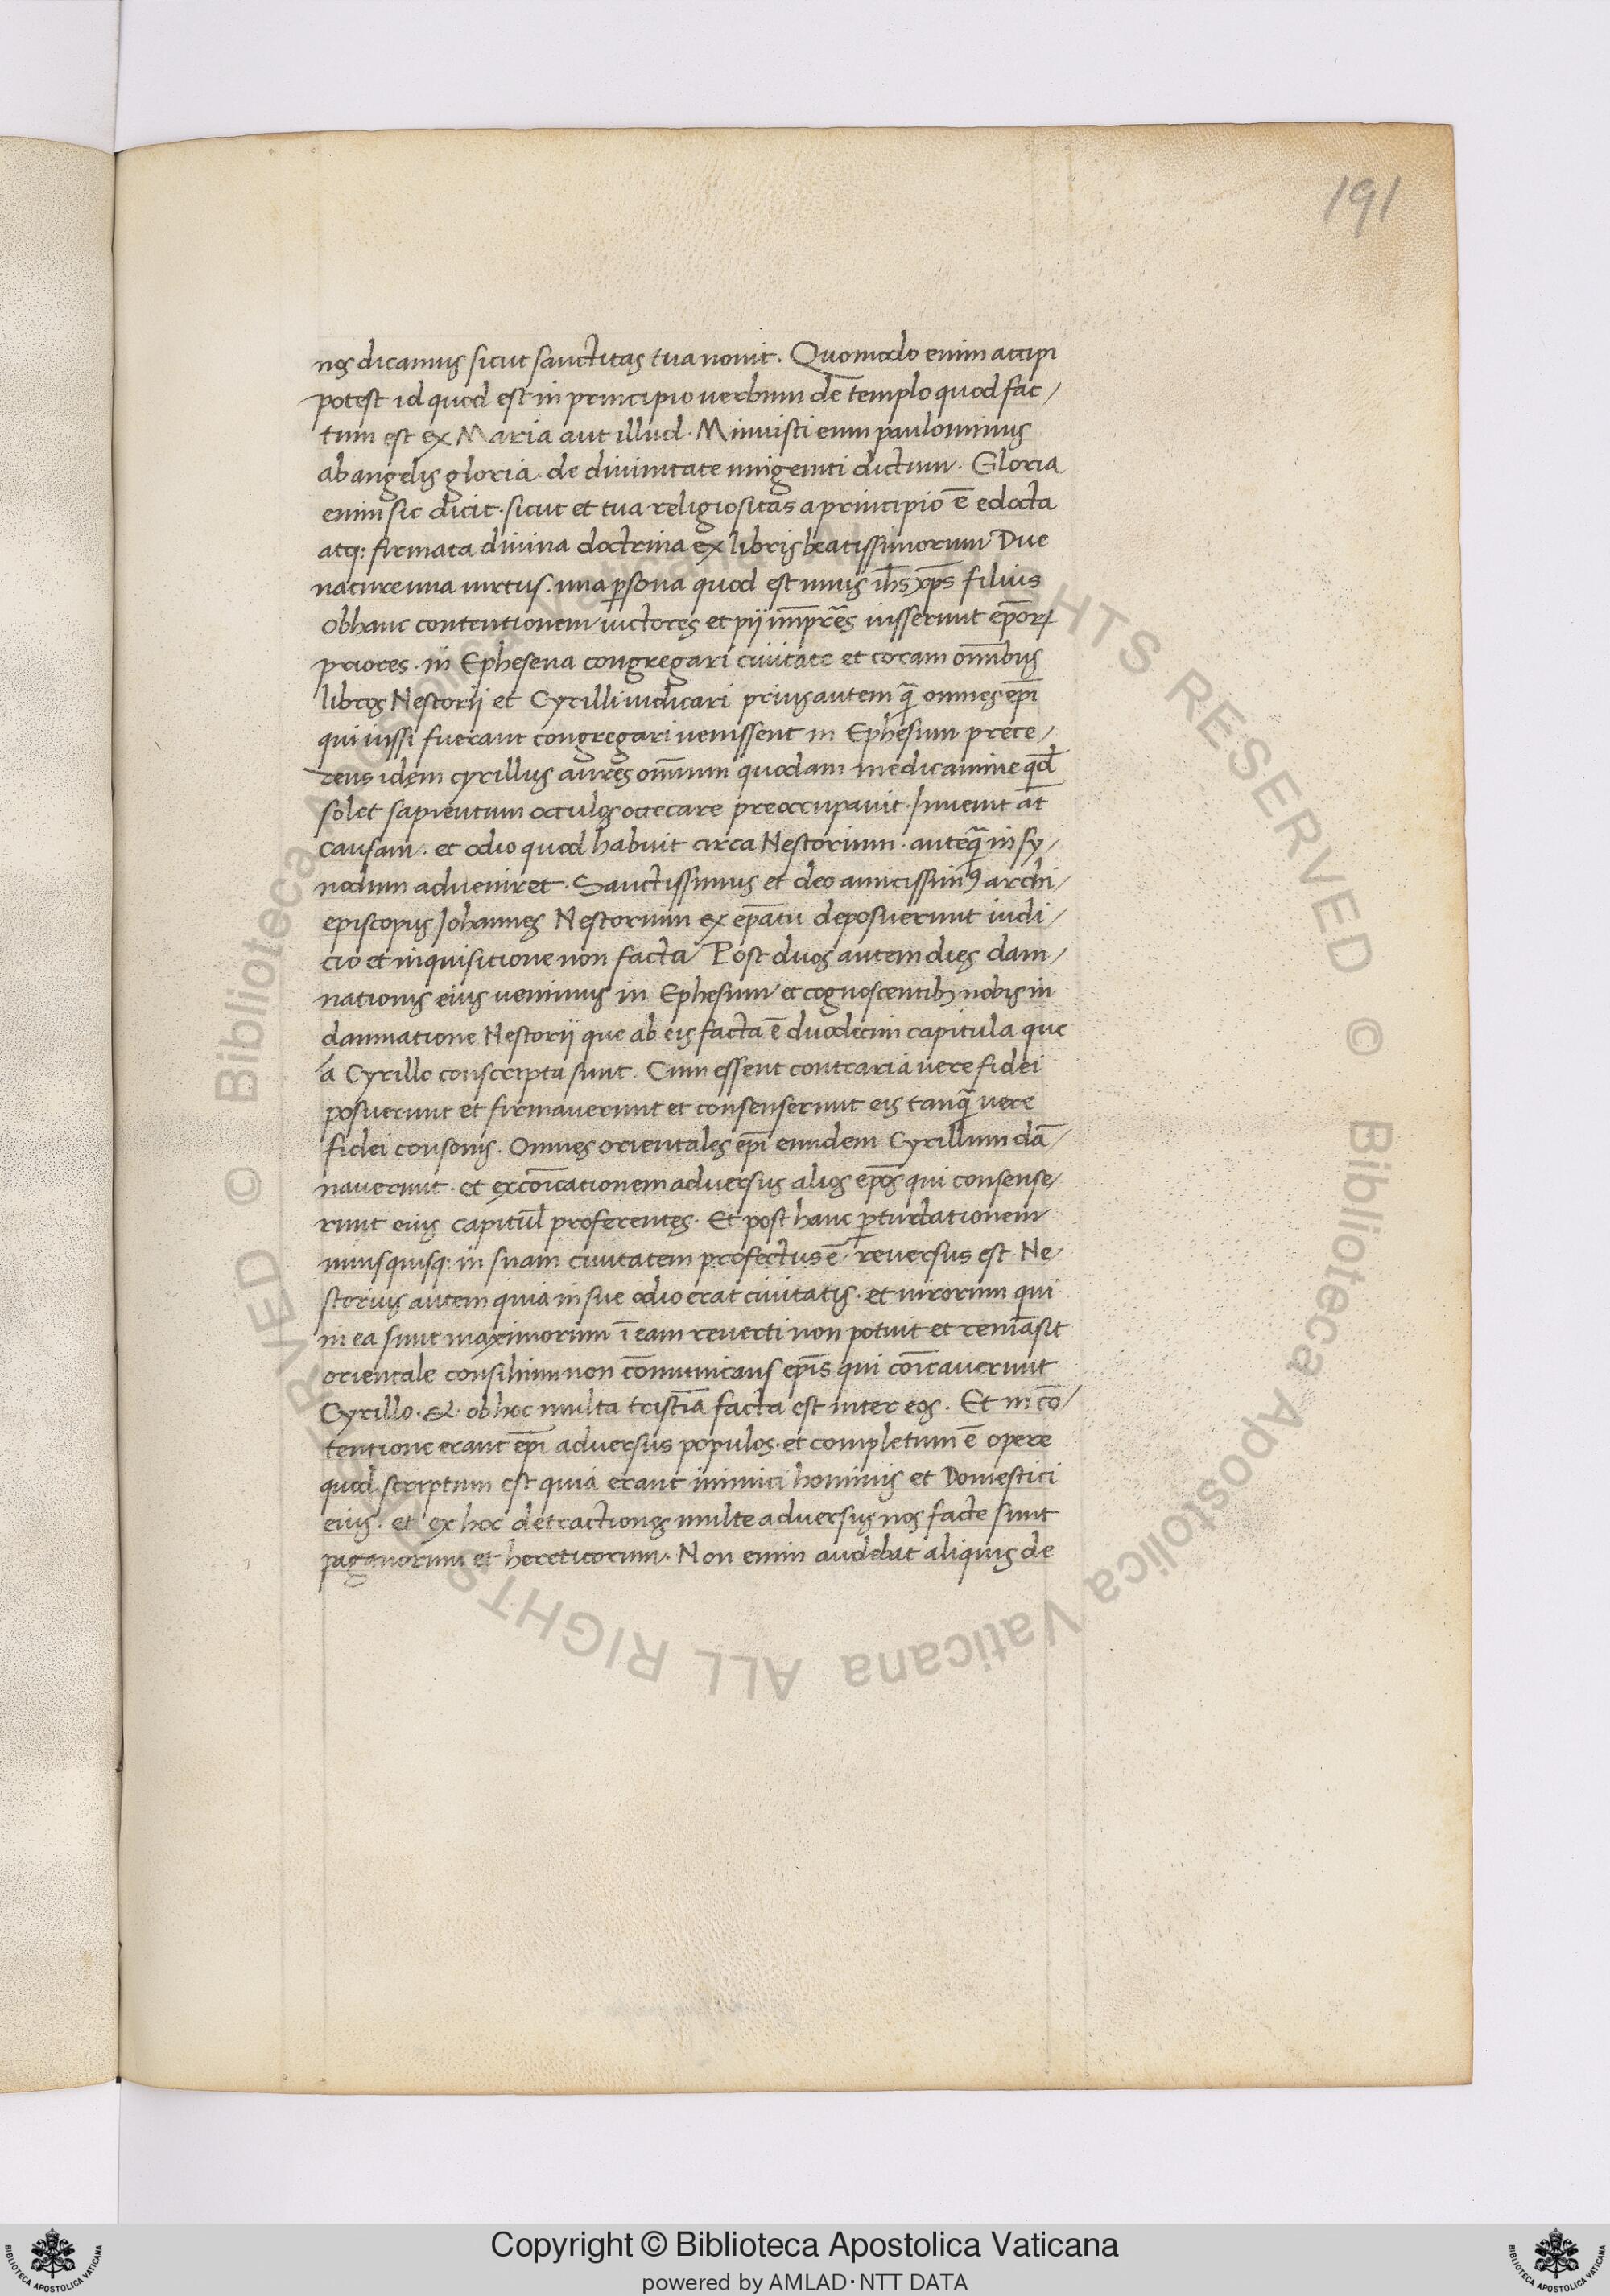 191
nos dicamus sicut sanctitas tua novit. Quomodo enim accipi
potest id quod est in principio verbum de templo quod fac/
tum est ex Maria aut illud. Minuisti eum paulominus
ab angelis gloria. de divinitate unigeniti dictum. Gloria
enim sic dicit. sicut et tua religiositas a principio ē edocta
atq: firmata divina doctrina ex libris beatissimorum Due
nature una virtus. una ꝑsona quod est unus ih̄s xp̄s filius
ob hanc contentionem victores et pij imp̄rēs iusserunt ep̄oꝝ
priores. in Ephesena congregari civitate et coram om̄ibus
libros Nestorij et Cyrilli iudicari prius autem q̄ omnes ep̄i
qui iussi fuerant congregari venissent in Ephesum prete/
reus idem cyrillus aures om̄ium quodam medicamine qd̄
solet sapientum occulos occecare preoccupavit. Invenit at̄
causam. et odio quod habuit circa Nestorium. anteq̄ in sy/
nodum adveniret. Sanctissimus et deo amicissimꝰ archi/
episcopus Johannes Nestorium ex ep̄atu deposuerunt iudi/
cio et inquisitione non facta Post duos autem dies dam/
nationis eius venimus in Ephesum et cognoscentibꝫ nobis in
damnatione Nestorij que ab eis facta ē duodecim capitula que
a Cyrillo conscripta sunt. Cum essent contraria vere fidei
posuerunt et firmaverunt et consenserunt eis tanq̄ vere
fidei consonis. Omnes orientales ep̄i eundem Cyrillum dā/
naverunt. et excōicationem adversus alios ep̄os qui consense/
runt eius capitul̄ proferentes. Et post hanc ꝑturbationem
unusquisq: in suam civitatem profectus ē. reversus est Ne/
storius autem quia in sue odio erat civitatis. et virorum qui
in ea sunt maximorum ī eam reverti non potuit et remāsit
orientale consilium non cōmunicans ep̄is qui cōicaverunt
Cyrillo. &. ob hoc multa tristīa facta est inter eos. Et in cō/
tentione erant ep̄i adversus populos. et completum ē opere
quod scriptum est quia erant inimici hominis et Domestici
eius. et ex hoc detractiones multe adversus nos facte sunt
paganorum et hereticorum. Non enim audebat aliquis de
© Biblioteca Apostolica Vaticana ALL RIGHTS RESERVED
© Biblioteca Apostolica Vaticana ALL RIGHTS RESERVED
Copyright © Biblioteca Apostolica Vaticana
powered by AMLAD·NTT DATA
BIBLIOTECA APOSTOLICA VATICANA
BIBLIOTECA APOSTOLICA VATICANA